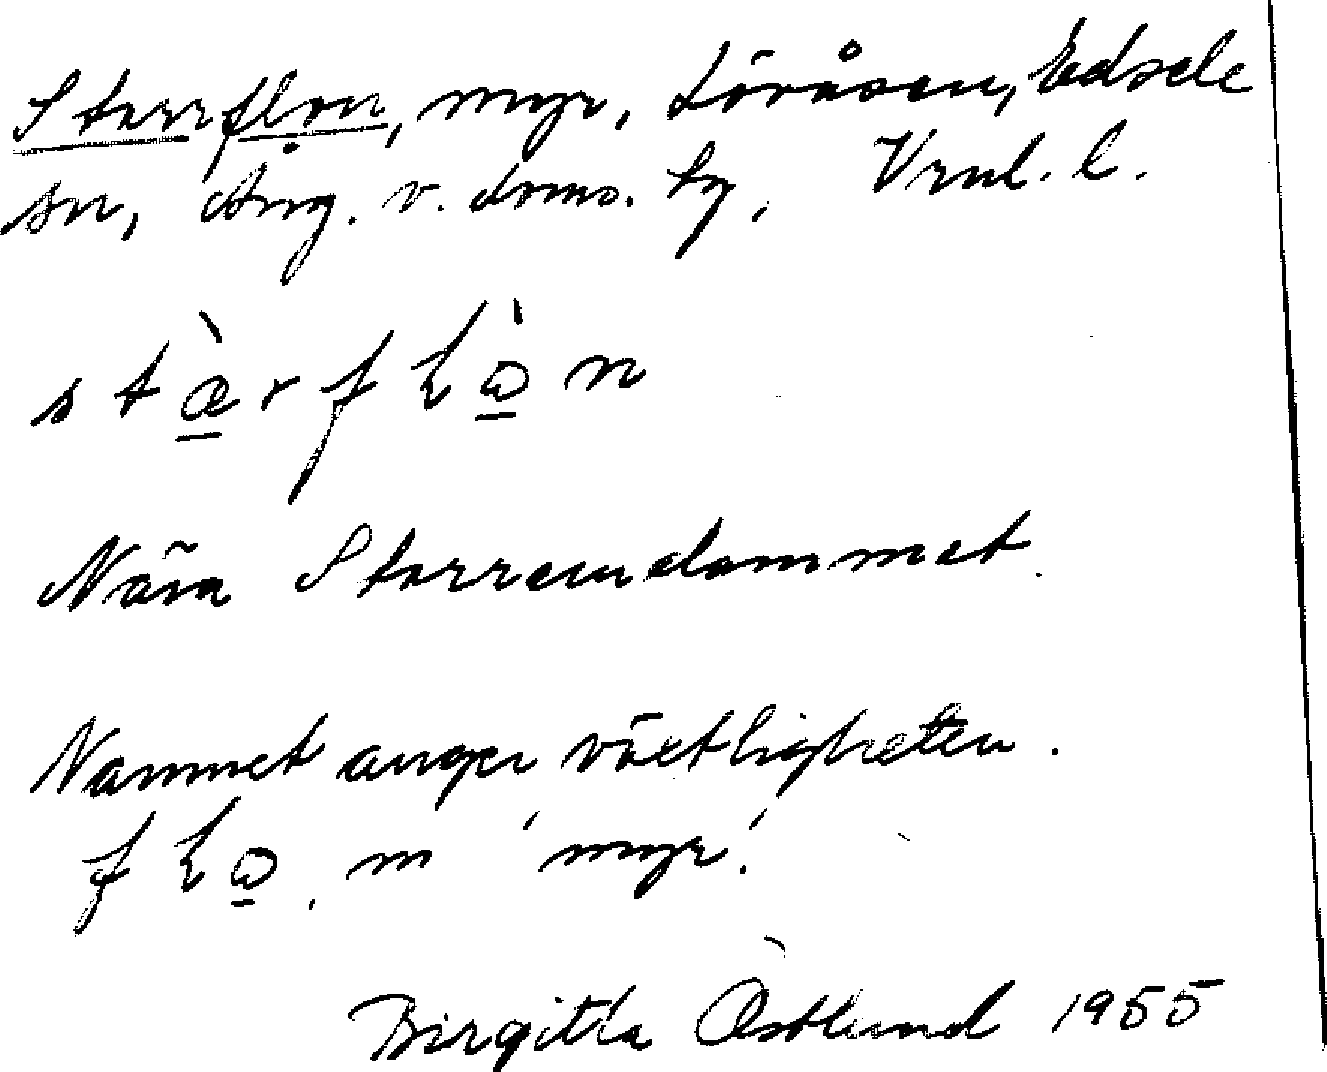 Starrflon, myr, Lövåsen, Edsele
sn, Ång. v. doms. lg,
stàrfɫòn
Nära Starrendammet.
Namnet anger växtligheten.
fɫo, m 'myr'.
Birgitta Östlund 1955